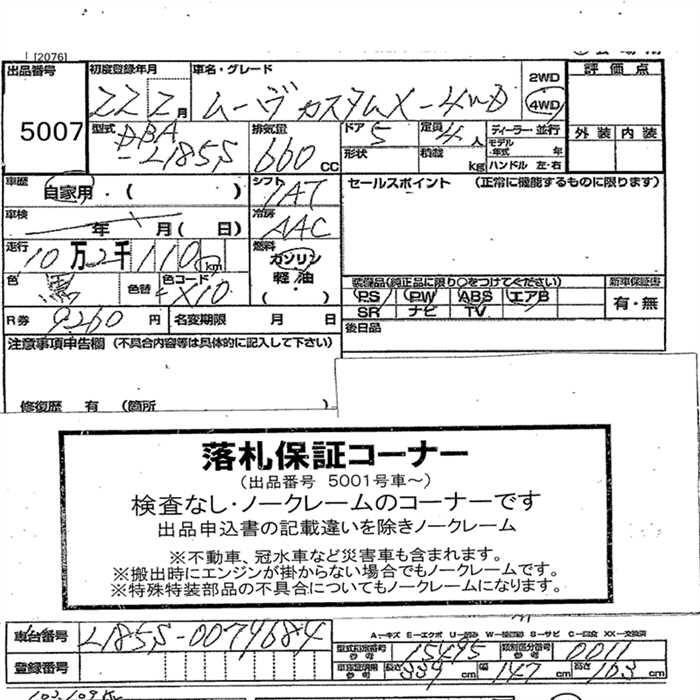 [2076]
出品番号 初度登録年月 車名・グレード 2WD 評価点
5007 22 2月 ムーヴ カスタムX-4WD 4WD
型式 DBA-L185S 排気量 660cc ドア 5 定員 4人 ディーラー・並行 外装 内装
形状 積載 kg モデル・年式 年 ハンドル 左・右
車歴 自家用・( ) シフト 7AT セールスポイント (正常に機能するものに限ります)
車検 年 月( 日) 冷房 AAC
走行 10万2千110km 燃料 ガソリン 軽油 ( ・ )
色 黒 色替 色コード X10
装備品(純正品に限り○をつけてください) 新車保証書
PS PW ABS エアB 有・無
SR ナビ TV
R券 9260円 名変期限 月 日 後日品
注意事項申告欄 (不具合内容等は具体的に記入して下さい)
修復歴 有 (箇所 )
落札保証コーナー
(出品番号 5001号車～)
検査なし・ノークレームのコーナーです
出品申込書の記載違いを除きノークレーム
※不動車、冠水車など災害車も含まれます。
※搬出時にエンジンが掛からない場合でもノークレームです。
※特殊特装部品の不具合についてもノークレームになります。
車台番号 L185S-0074684 A-キズ E-エクボ U-凹み W-補修跡 S-サビ C-腐食 XX-交換済
型式指定番号 参考 15495 類別区分番号 参考 0011
登録番号 車検証明用 参考 長さ 339cm 幅 147cm 高さ 163cm